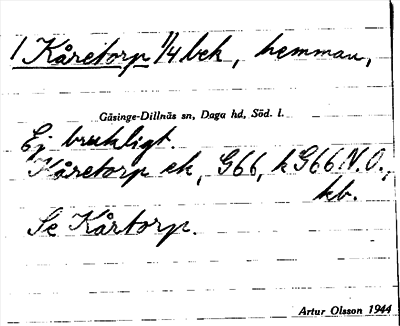 1 Kåretorp 1/4 bek, hemman,
Gåsinge-Dillnäs sn, Daga hd, Söd. l.
Ej brukligt.
Kåretorp ek, G66, k G66 N.O.,
kb.
Se Kårtorp.
Artur Olsson 1944